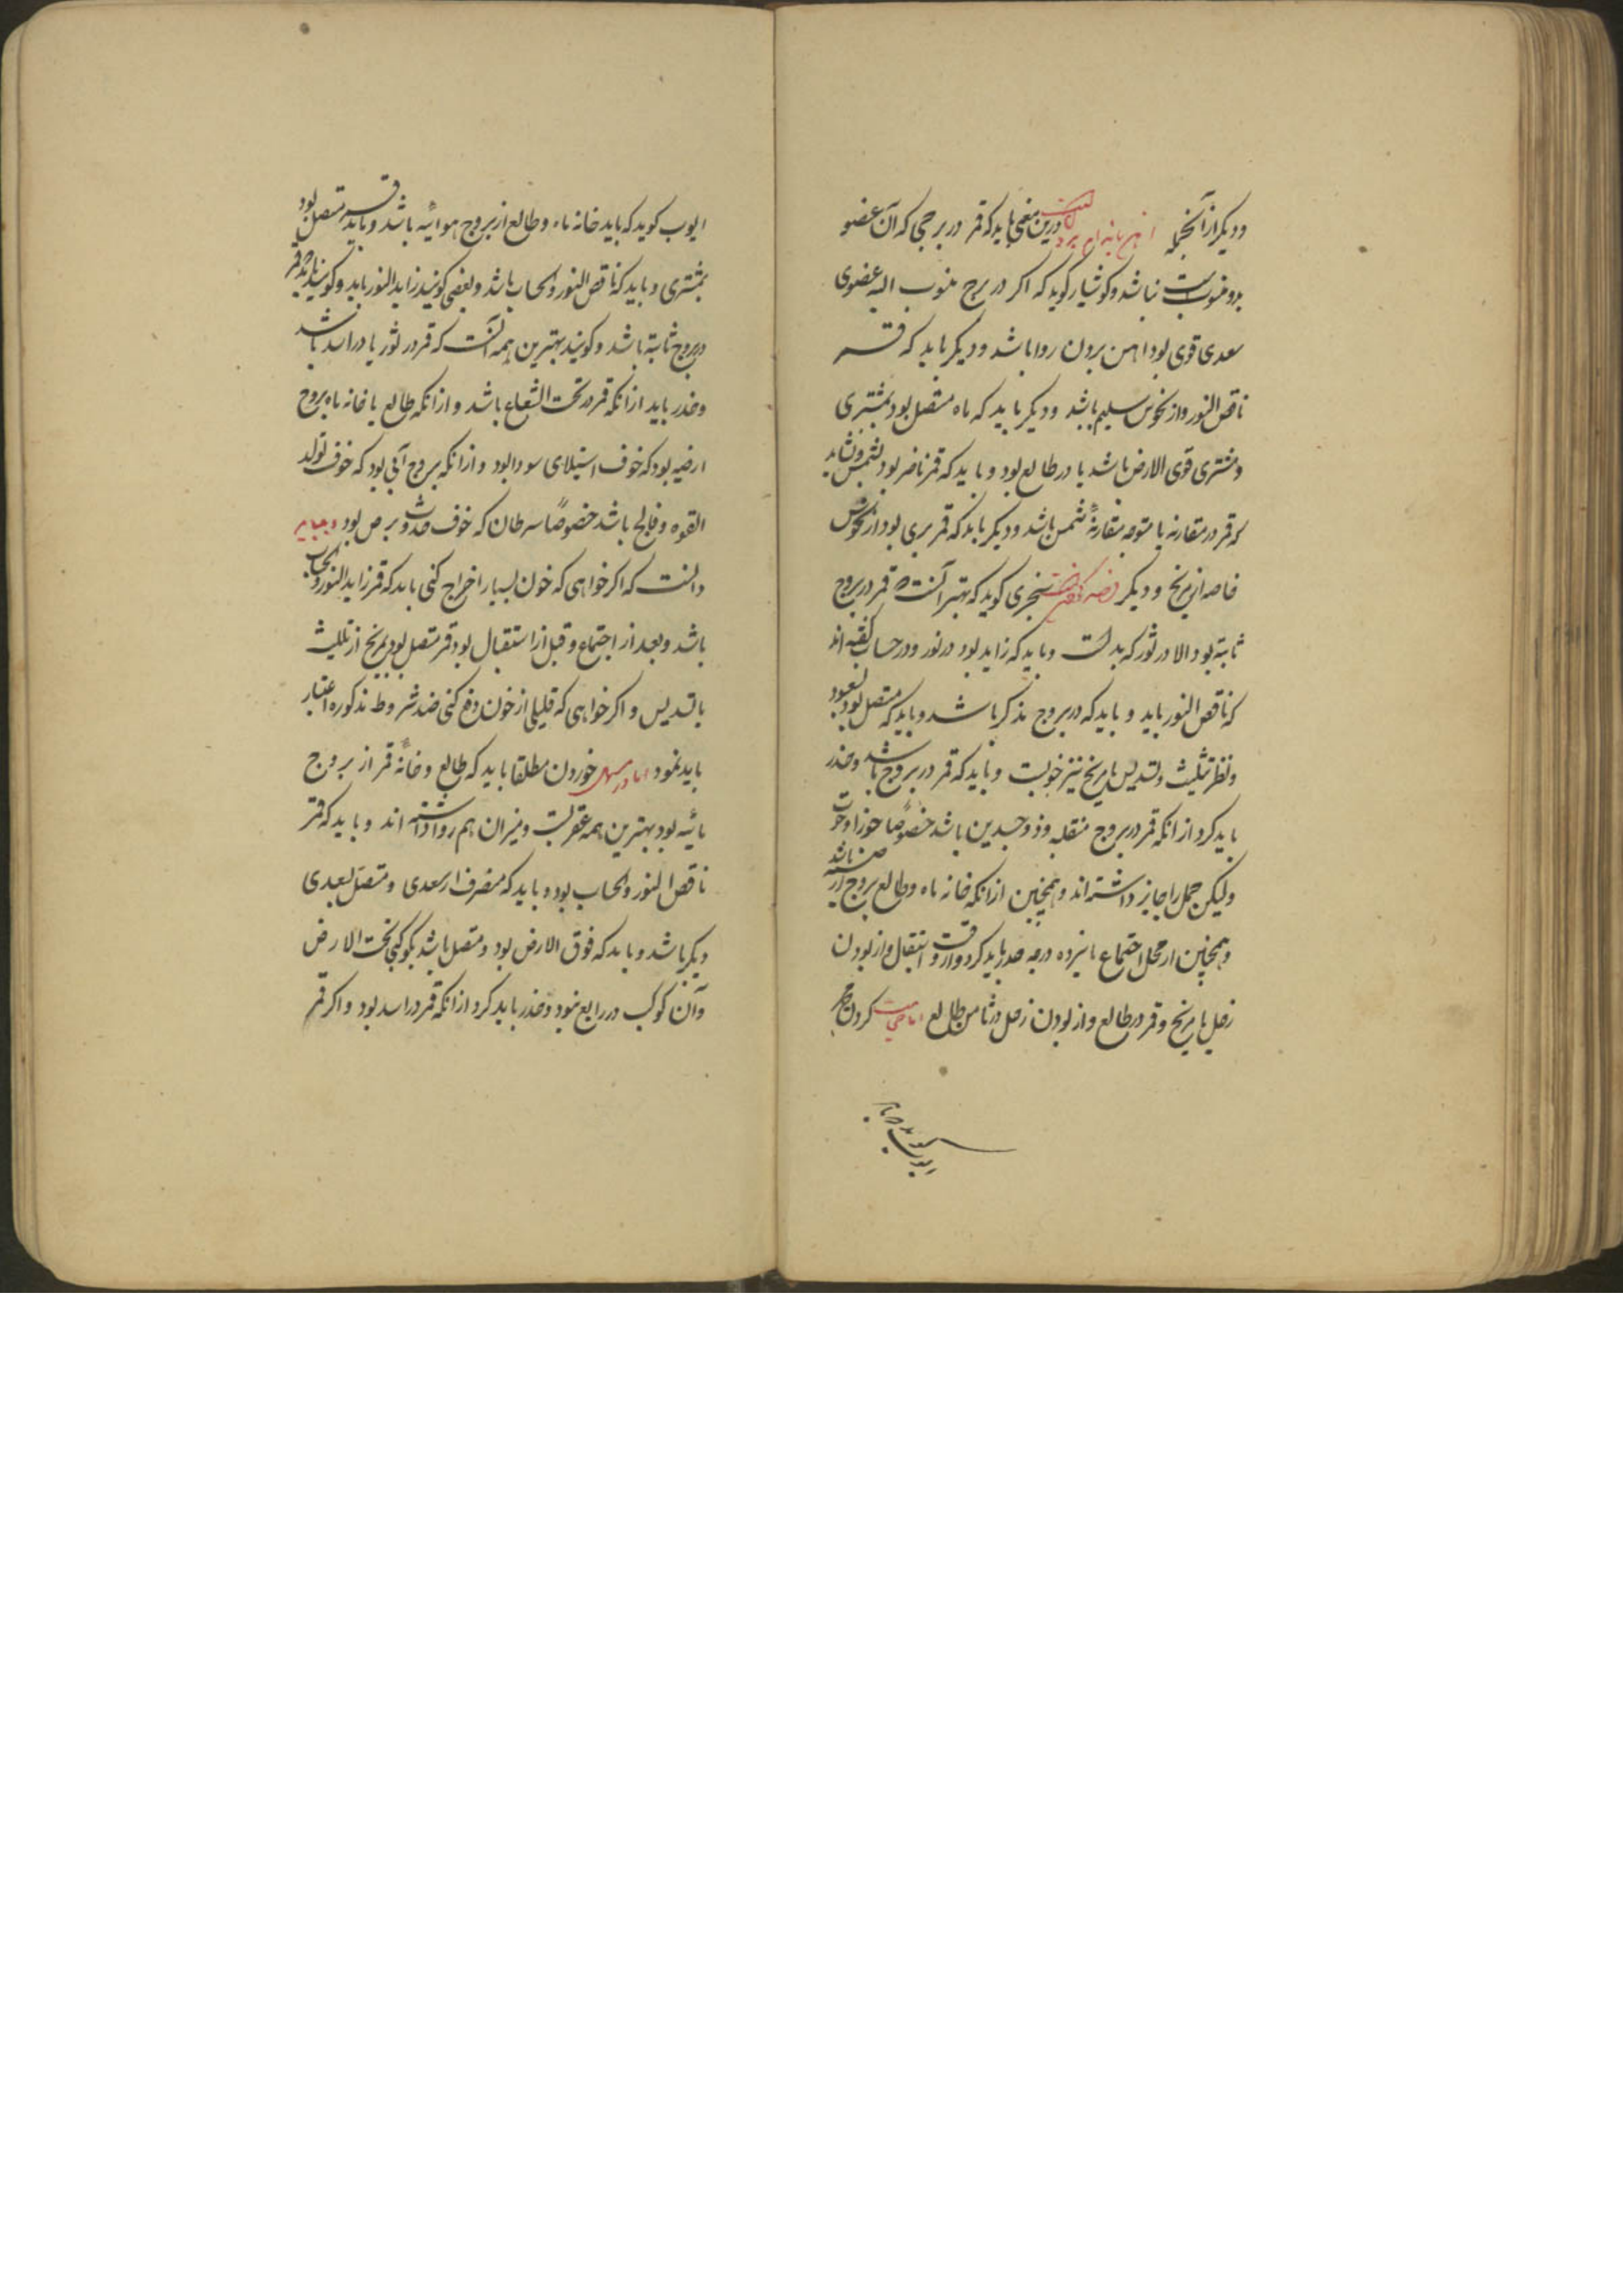 و دیکر از آنجمله آهن بانه ام بردن است درین معنی باید که قمر در برجی که آن عضو
بدو منسوبست نباشد و کوشیار کوید که اکر در برج منسوب الیه عضوی
سعدی قوی بود آهن بردن روا باشد و دیکر باید که قمر
ناقص النور و از نحوس سلیم باشد و دیکر باید که ماه متصل بود بمشتری
و مشتری فوق الارض باشد یا در طالع بود و باید که قمر ناظر بود بشمس و نشاید
که قمر در مقارنه یا متوجه مقارنهٔ شمس باشد و دیکر باید که قمر بری بود از نحوس
خاصه از مریخ و دیکر فصد کردنست سنجری کوید که بهتر آنست که قمر در بروج
ثابته بود الا در ثور که بدست و باید که زاید بود در نور و در حساب کفته اند
که ناقص النور باید و باید که در بروج مذکر باشد و باید که متصل بود بسعود
و نظر تثلیث و تسدیس با مریخ نیز خوبست و باید که قمر در بروج باشد و حذر
باید کرد از انکه قمر در بروج منقلبه و ذو جسدین باشد خصوصاً جوزا و حوت
ولیکن حمل را جایز داشته اند و همچنین از انکه خانه ماه و طالع بروج ارضیه باشد
و همچنین از محل اجتماع تا پنزده درجه حذر باید کرد و از وقت انتقال و از بودن
زحل یا مریخ و قمر در طالع و از بودن زحل در ثامن طالع اما حجامت کردن
ایوب کوید که باید
ایوب کوید که باید خانه ماه و طالع از بروج هوائیه باشد و باید قمر متصل بود
بمشتری و باید که ناقص النور و الحساب باشد و بعضی کویند زاید النور باید و کویند باید که قمر
در بروج ثابته باشد و کویند بهترین همه آنست که قمر در ثور یا در اسد باشد
و حذر باید از انکه قمر در تحت الشعاع باشد و از انکه طالع یا خانه ماه بروج
ارضیه بود که خوف استیلای سودا بود و از انکه بروج آبی بود که خوف تولد
القوه و فالج باشد خصوصاً سرطان که خوف حدوث برص بود و بباید
دانست که اکر خواهی که خون بسیار اخراج کنی باید که قمر زاید النور و الحساب
باشد و بعد از اجتماع و قبل از استقبال بود و قمر متصل بود بمریخ از تثلیث
یا تسدیس و اکر خواهی که قلیلی از خون دفع کنی ضد شروط مذکوره اعتبار
باید نمود اما در مسهل خوردن مطلقا باید که طالع و خانهٔ قمر از بروج
مائیه بود بهترین همه عقربست و میزان هم روا داشته اند و باید که قمر
ناقص النور و الحساب بود و باید که منصرف از سعدی و متصل بسعدی
دیکر باشد و باید که فوق الارض بود و متصل باشد بکوکبی تحت الارض
و آن کوکب در رابع نبود و حذر باید کرد از انکه قمر در اسد بود و اکر قمر